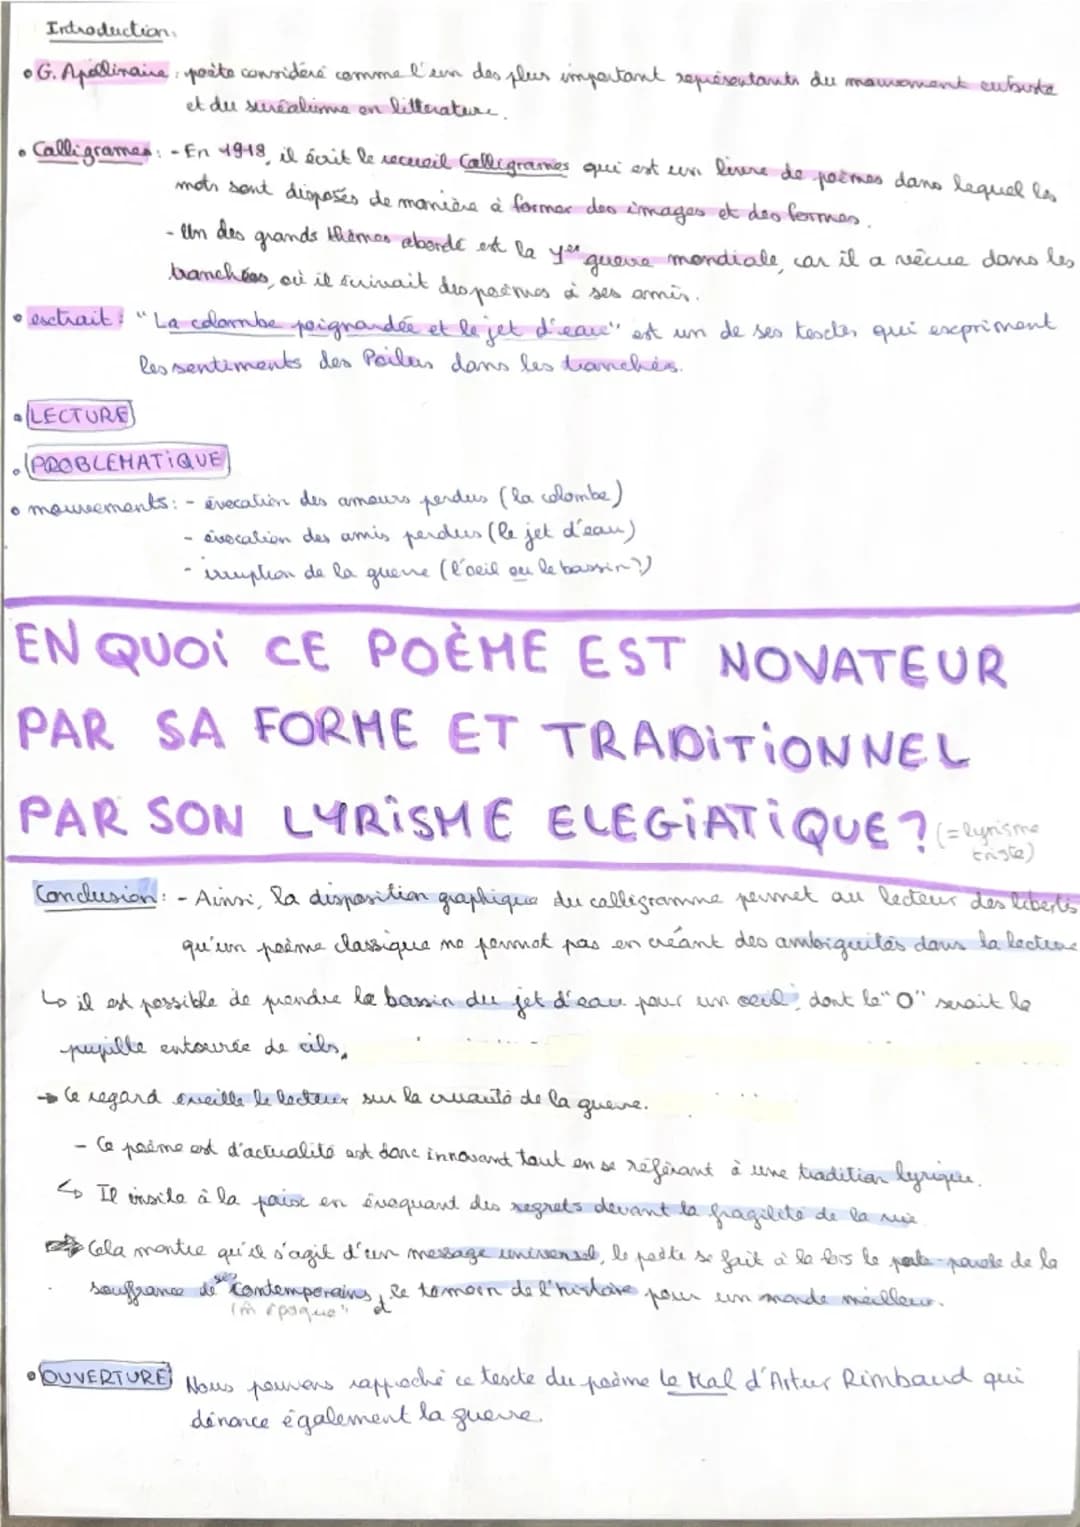 Introduction.
• G. Apollinaire : poète considéré comme l'un des plus important représentants du mouvement cubiste
et du suréalisme en litterature.
• Calligrames : - En 1918, il écrit le recueil Calligrames qui est un livre de poèmes dans lequel les
mots sont disposés de manière à former des images et des formes.
- Un des grands thèmes abordé est la 1ère guerre mondiale, car il a vécue dans les
tranchées, où il écrivait des poèmes à ses amis.
• extrait : "La colombe poignardée et le jet d'eau" est un de ses textes qui expriment
les sentiments des Poilus dans les tranchés.
• LECTURE
• PROBLEMATIQUE
• mouvements : - évocation des amours perdus (la colombe)
- évocation des amis perdus (le jet d'eau)
- irruption de la guerre (l'oeil ou le bassin?)
EN QUOI CE POÈME EST NOVATEUR
PAR SA FORME ET TRADITIONNEL
PAR SON LYRISME ELEGIATIQUE ? (= lyrisme
triste)
Conclusion : - Ainsi, la disposition graphique du calligramme permet au lecteur des libertés
qu'un poème classique ne permet pas en créant des ambiguités dans la lecture
↳ il est possible de prendre le bassin du jet d'eau pour un oeil, dont le "O" serait la
pupille entourée de cils,
→ Ce regard éveille le lecteur sur la cruauté de la guerre.
- Ce poème est d'actualité est donc innovant tout en se référant à une tradition lyrique.
↳ Il insite à la paix en évoquant des regrets devant la fragilité de la vie
⇒ Cela montre qu'il s'agit d'un message universel, le poète se fait à la fois le porte-parole de la
souffrance de ses contemporains, et le temoin de l'histoire pour un monde meilleur.
(m époque)
• OUVERTURE Nous pouvons rapproché ce texte du poème Le Mal d'Artur Rimbaud qui
dénonce également la guerre.